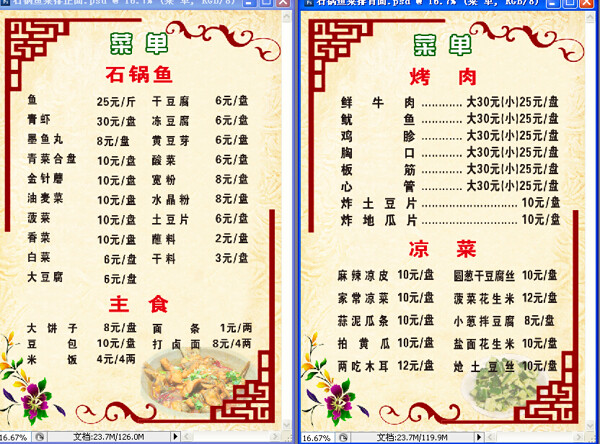 石锅鱼菜排正面.psd @ 16.7% (菜 单, RGB/8)
菜 单
石锅鱼
鱼 25元/斤 干豆腐 6元/盘
青虾 30元/盘 冻豆腐 6元/盘
墨鱼丸 8元/盘 黄豆芽 6元/盘
青菜合盘 10元/盘 酸菜 6元/盘
金针蘑 10元/盘 宽粉 8元/盘
油麦菜 10元/盘 水晶粉 8元/盘
菠菜 10元/盘 土豆片 6元/盘
香菜 10元/盘 蘸料 2元/盘
白菜 6元/盘 干料 3元/盘
大豆腐 6元/盘
主 食
大饼子 8元/盘 面条 1元/两
豆包 10元/盘 打卤面 8元/4两
米饭 4元/4两
16.67% 文档:23.7M/126.0M
石锅鱼菜排背面.psd @ 16.7% (菜 单, RGB/8)
菜 单
烤 肉
鲜牛肉............大30元(小)25元/盘
鱿鱼............大30元(小)25元/盘
鸡胗............大30元(小)25元/盘
胸口............大30元(小)25元/盘
板筋............大30元(小)25元/盘
心管............大30元(小)25元/盘
炸土豆片............10元/盘
炸地瓜片............10元/盘
凉 菜
麻辣凉皮 10元/盘 圆葱干豆腐丝 10元/盘
家常凉菜 10元/盘 菠菜花生米 12元/盘
蒜泥瓜条 10元/盘 小葱拌豆腐 8元/盘
拍黄瓜 10元/盘 盐面花生米 10元/盘
两吃木耳 12元/盘 炝土豆丝 10元/盘
16.67% 文档:23.7M/119.9M